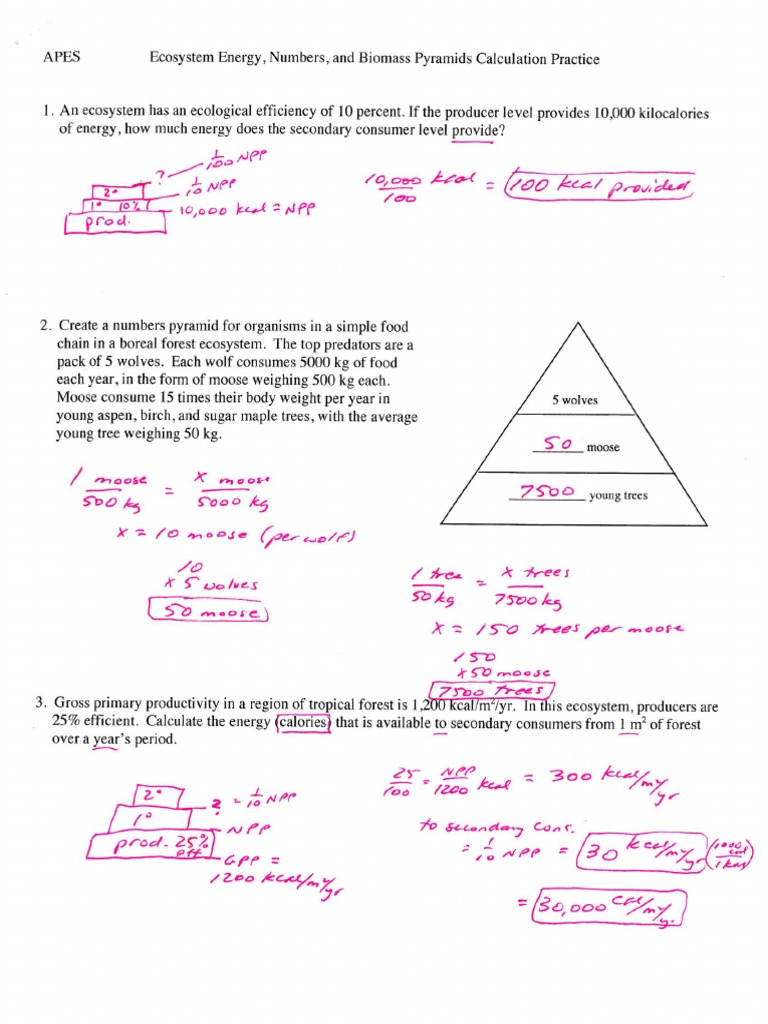 APES Ecosystem Energy, Numbers, and Biomass Pyramids Calculation Practice
1. An ecosystem has an ecological efficiency of 10 percent. If the producer level provides 10,000 kilocalories
of energy, how much energy does the secondary consumer level provide?
1/100 NPP
?
1/10 NPP
2°
1° 10%
10,000 kcal = NPP
prod.
10,000 kcal / 100 = 100 kcal provided
2. Create a numbers pyramid for organisms in a simple food
chain in a boreal forest ecosystem. The top predators are a
pack of 5 wolves. Each wolf consumes 5000 kg of food
each year, in the form of moose weighing 500 kg each.
Moose consume 15 times their body weight per year in
young aspen, birch, and sugar maple trees, with the average
young tree weighing 50 kg.
5 wolves
50 moose
7500 young trees
1 moose / 500 kg = x moose / 5000 kg
x = 10 moose (per wolf)
10
x 5 wolves
50 moose
1 tree / 50 kg = x trees / 7500 kg
x = 150 trees per moose
150
x 50 moose
7500 trees
3. Gross primary productivity in a region of tropical forest is 1,200 kcal/m²/yr. In this ecosystem, producers are
25% efficient. Calculate the energy (calories) that is available to secondary consumers from 1 m² of forest
over a year's period.
2° ? = 1/10 NPP
1° NPP
prod. 25% eff
GPP =
1200 kcal/m²/yr
25/100 = NPP/1200 kcal = 300 kcal/m²/yr
to secondary cons.
= 1/10 NPP = 30 kcal/m²/yr (1000 cal / 1 kcal)
= 30,000 cal/m²/yr